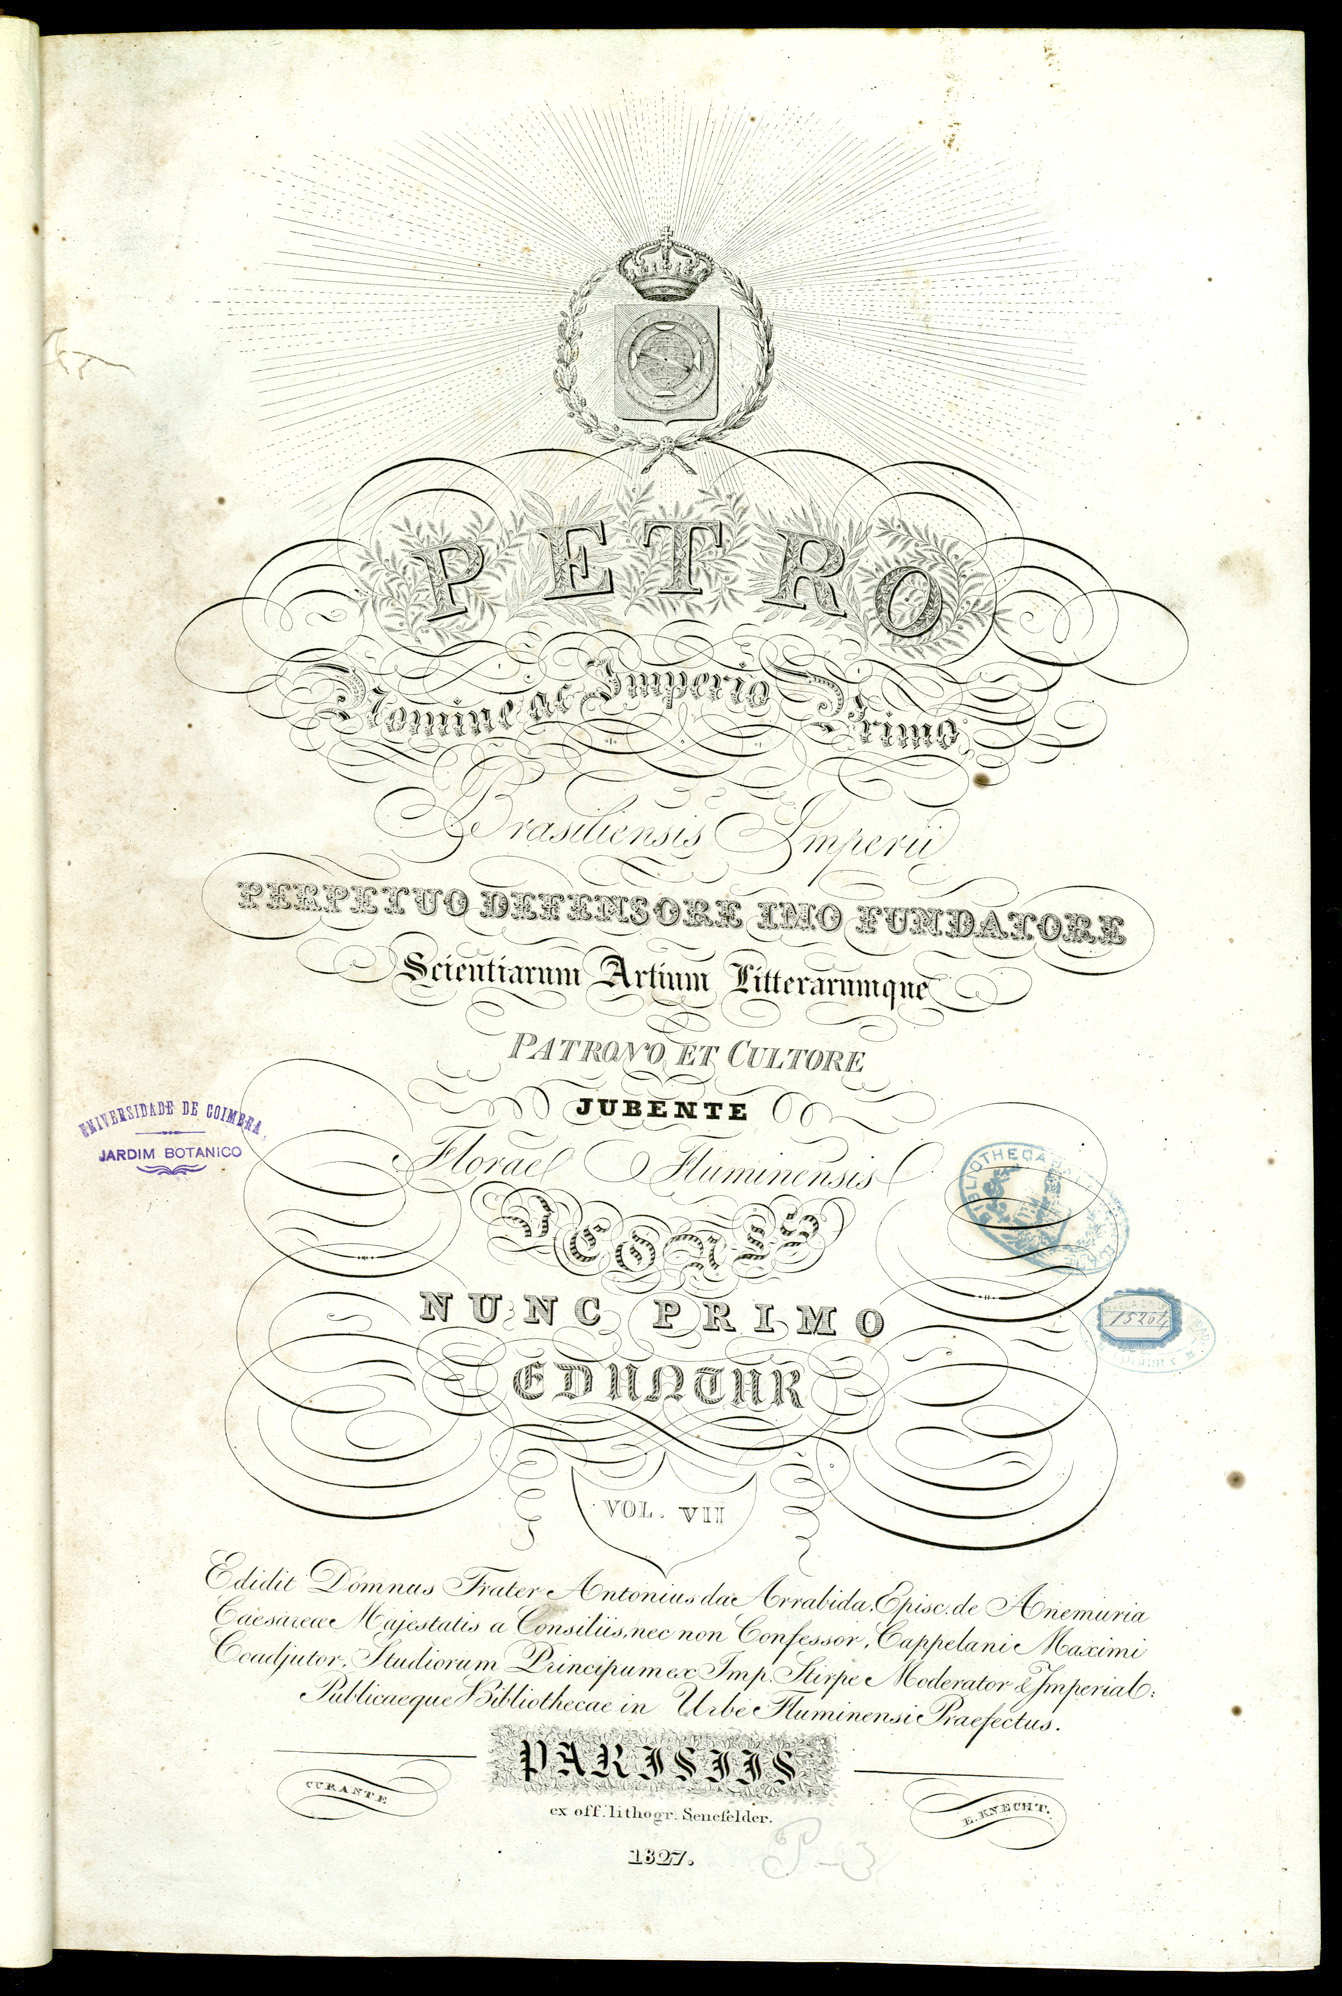 PETRO
Nomine ac Imperio Primo,
Brasiliensis Imperii
PERPETUO DEFENSORE IMO FUNDATORE
Scientiarum Artium Litterarumque
PATRONO ET CULTORE
JUBENTE
Florae Fluminensis
ICONES
NUNC PRIMO
EDUNTUR
VOL. VII
Edidit Domnus Frater Antonius da Arrabida, Episc. de Anemuria
Caesareae Majestatis a Consiliis, nec non Confessor, Cappelani Maximi
Coadjutor, Studiorum Principum ex Imp. Stirpe Moderator & Imperial:
Publicaeque Bibliothecae in Urbe Fluminensi Praefectus.
PARISIIS
CURANTE
E. KNECHT.
ex off. lithogr. Senefelder.
1827.
P-3
UNIVERSIDADE DE COIMBRA
JARDIM BOTANICO
15264